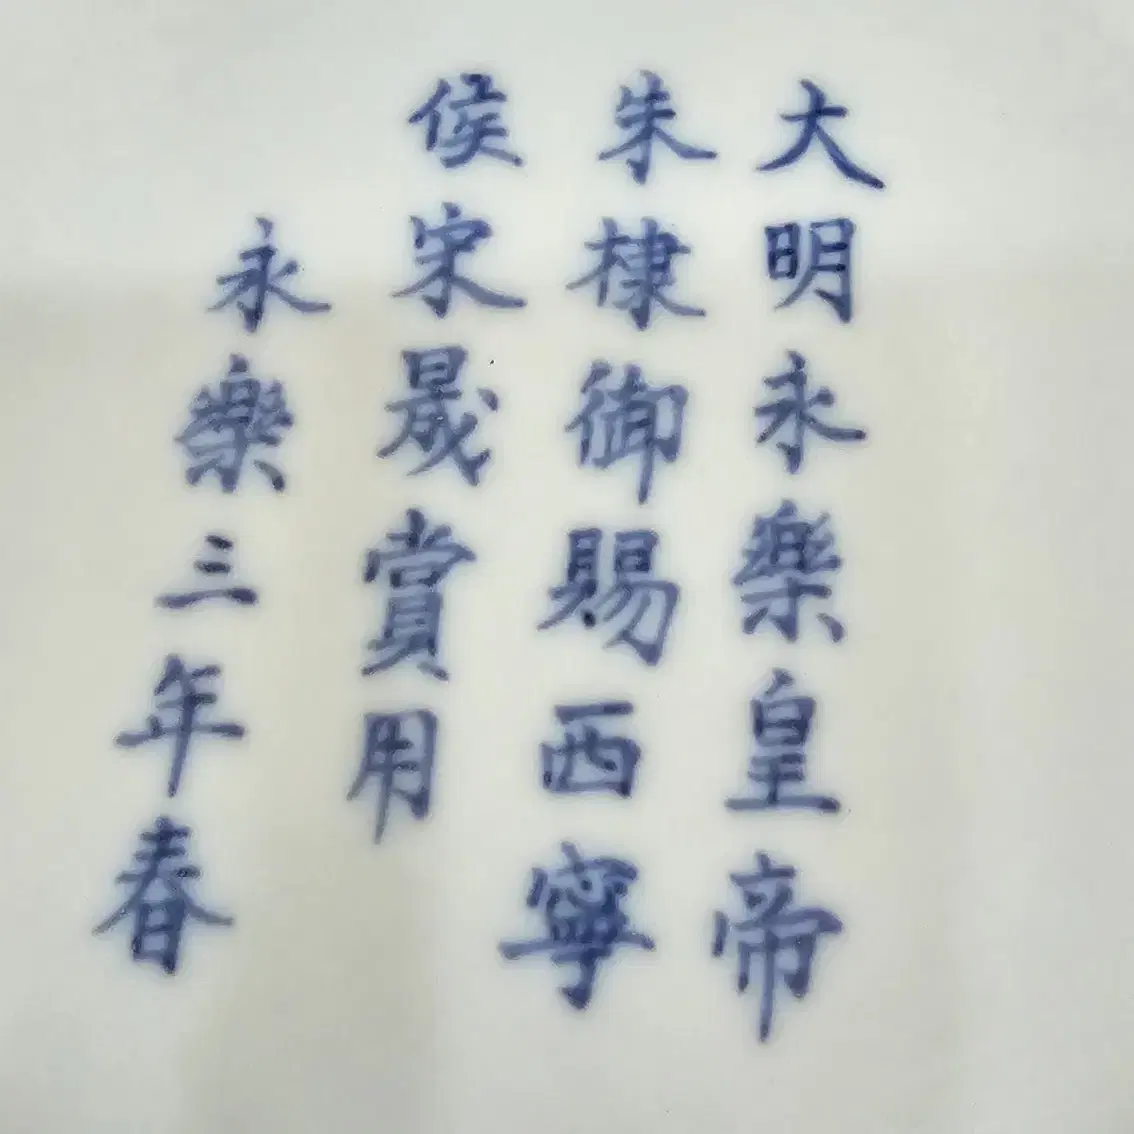 大明永樂皇帝
朱棣御賜西寧
侯宋晟賞用
永樂三年春